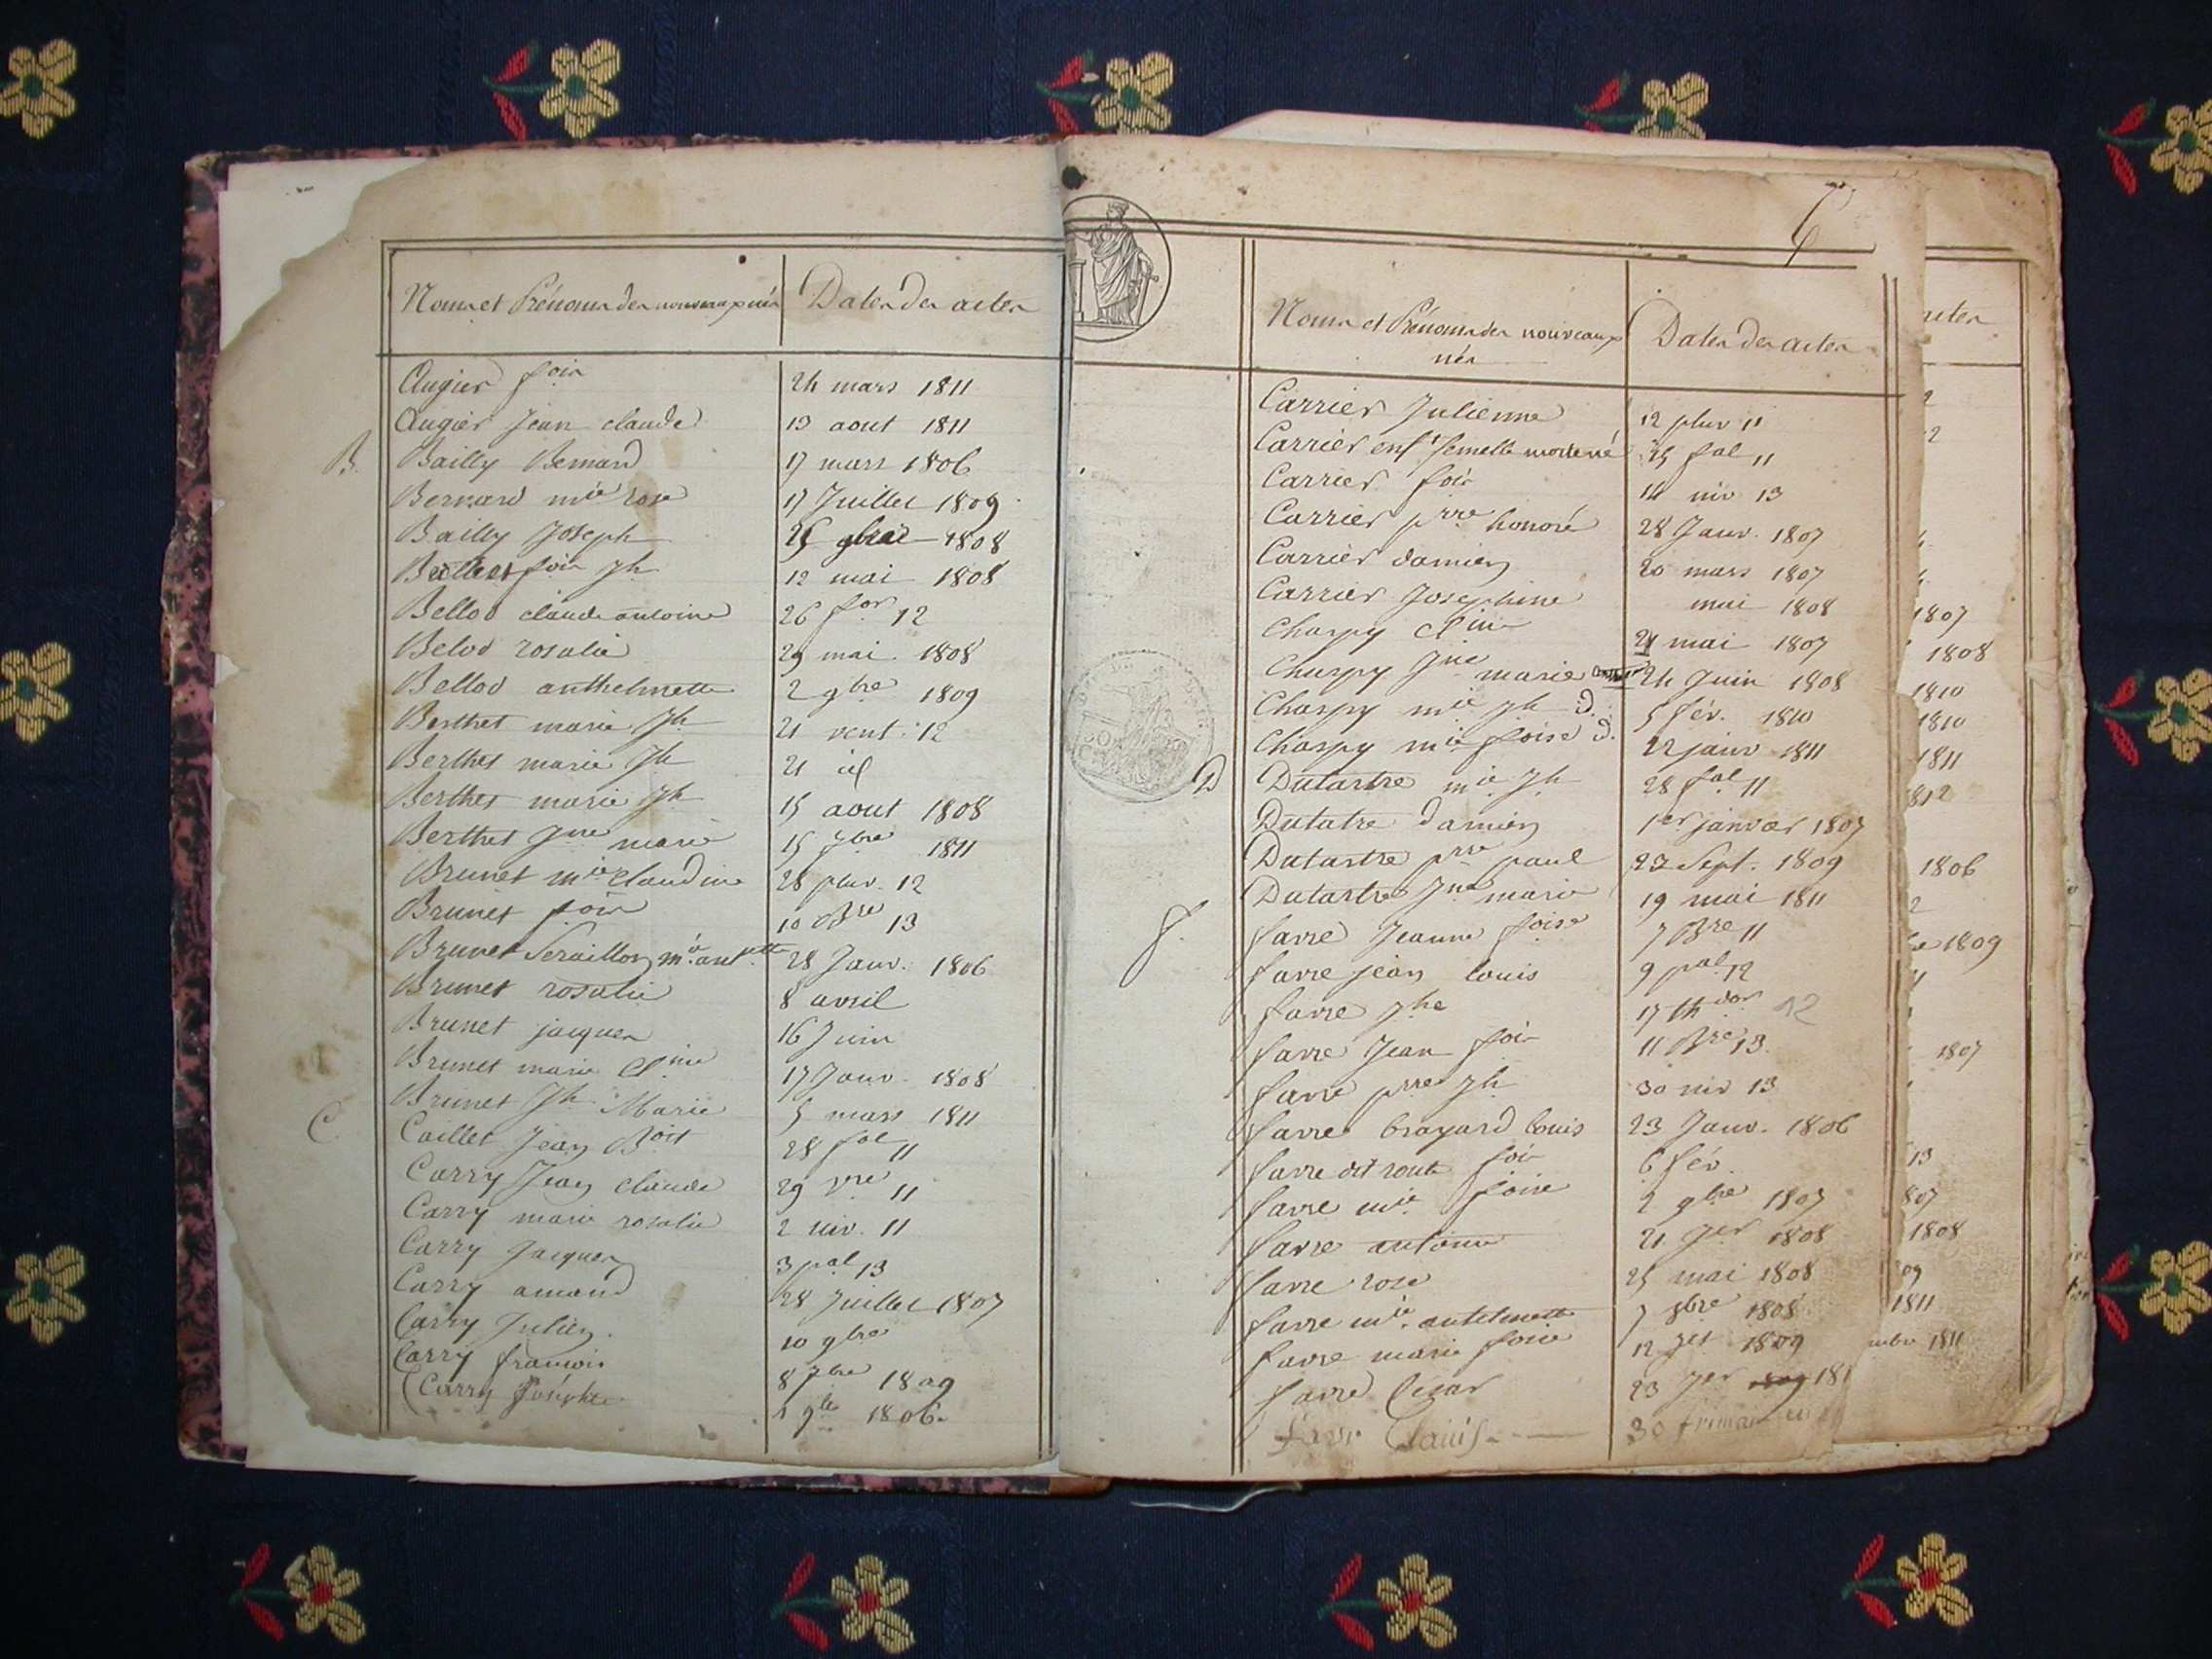 Noms et Prénoms des nouveaux nés Dates des actes
Augier fois 24 mars 1811
Augier Jean claude 13 aout 1811
B. Bailly Bernard 17 mars 1806
Bernard mie rose 17 Juillet 1809
Bailly Joseph 1808
fois Jh 12 mai 1808
Bellod claude antoine 26 12
Belod rosalie 29 mai 1808
Bellod anthelmette 2 9bre 1809
Berthet marie Jh 21 vent. 12
Berthet marie Jh 21 id
Berthet marie Jh 15 aout 1808
Berthet Jne marie 15 7bre 1811
Brunet mie claudine 28 pluv. 12
Brunet fois 10 Bre 13
Brunet Seraillon mie antette 28 Janv. 1806
Brunet rosalie 8 avril
Brunet jacques 16 Juin
Brunet marie Cline 17 Janv. 1808
Brunet Jh Marie 5 mars 1811
C. Caillet Jean Boit 28 fal 11
Carry Jean claude 29 11
Carry marie rosalie 2 niv. 11
Carry Jacques 3 pal 13
Carry amand 28 Juillet 1807
Carry Julien. 10 9bre
Carry francois 8 7bre 1809
Carry Josephe 1806.
Noms et Prénoms des nouveaux
nés
Dates des actes
Carrier Julienne 12 pluv 11
Carrier enft femelle mort né 25 fal 11
Carrier fois 14 niv 13
Carrier prre honoré 28 Janv. 1807
Carrier damien 20 mars 1807
Carrier Josephine mai 1808
Charpy Cline 21 mai 1807
Charpy Jne marie 24 Juin 1808
Charpy mie Jh d. 5 fév. 1810
Charpy mie foise d. 22 janv 1811
D Dutartre mie Jh 28 fal 11
Dutatre damien 1er janvier 1807
Dutartre prre paul 23 Sept. 1809
Dutartre Jne marie 19 mai 1811
f. favre Jeanne foise 7 Bre 11
favre jean louis 9 pal 12
favre Jhe 17 thdor 12
favre Jean fois 11 Bre 13.
favre prre Jh 30 niv 13
favre brayard louis 23 Janv. 1806
favre dit route fois 6 fév.
favre mie foise 2 9bre 1807
favre antoine 21 Jer 1808
favre rose 25 mai 1808
favre mie. antelmette 7 8bre 1808
favre marie foise 12 Jet 1809
favre Cézar 23 Jer 181
favre 30 frimaire
1807
1808
1810
1810
1811
1812
1806
1809
1807
13
1808
1811
1811